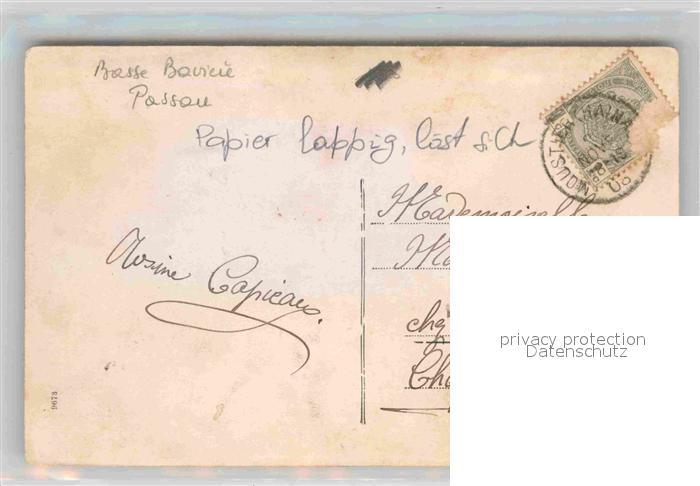 Basse Bavière
Passau
Papier lappig, löst sich
Mademoiselle
Alsine Capieaux.
chez
9673
privacy protection
Datenschutz